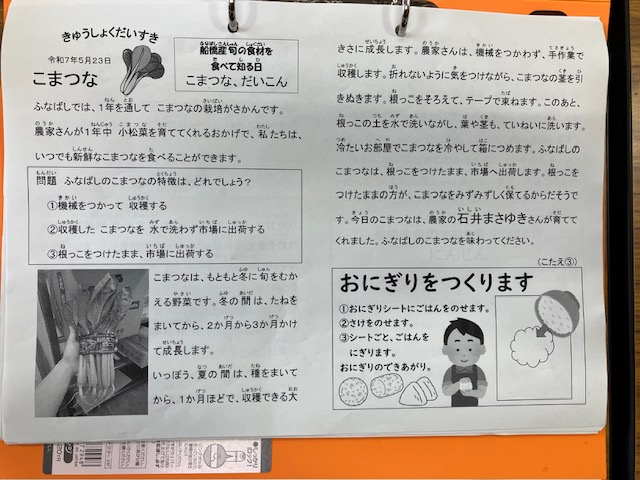 きゅうしょくだいすき
令和7年5月23日
こまつな
船橋産 旬の食材を
食べて知る日
こまつな、だいこん
ふなばしでは、1年を通して こまつなの栽培がさかんです。
農家さんが1年中 小松菜を育ててくれるおかげで、私たちは、
いつでも新鮮なこまつなを食べることができます。
問題 ふなばしのこまつなの特徴は、どれでしょう?
①機械をつかって 収穫する
②収穫した こまつなを 水で洗わず市場に出荷する
③根っこをつけたまま、市場に出荷する
こまつなは、もともと冬に旬をむか
える野菜です。冬の間は、たねを
まいてから、2か月から3か月かけ
て成長します。
いっぽう、夏の間は、種をまいて
から、1か月ほどで、収穫できる大
きさに成長します。農家さんは、機械をつかわず、手作業で
収穫します。折れないように気をつけながら、こまつなの茎を引
きぬきます。根っこをそろえて、テープで束ねます。このあと、
根っこの土を水で洗いながし、葉や茎も、ていねいに洗います。
冷たいお部屋でこまつなを冷やして箱につめます。ふなばしの
こまつなは、根っこをつけたまま、市場へ出荷します。根っこを
つけたままの方が、こまつなをみずみずしく保てるからだそうで
す。今日のこまつなは、農家の石井まさゆきさんが育てて
くれました。ふなばしのこまつなを味わってください。
(こたえ③)
おにぎりをつくります
①おにぎりシートにごはんをのせます。
②さけをのせます。
③シートごと、ごはんを
にぎります。
おにぎりのできあがり。